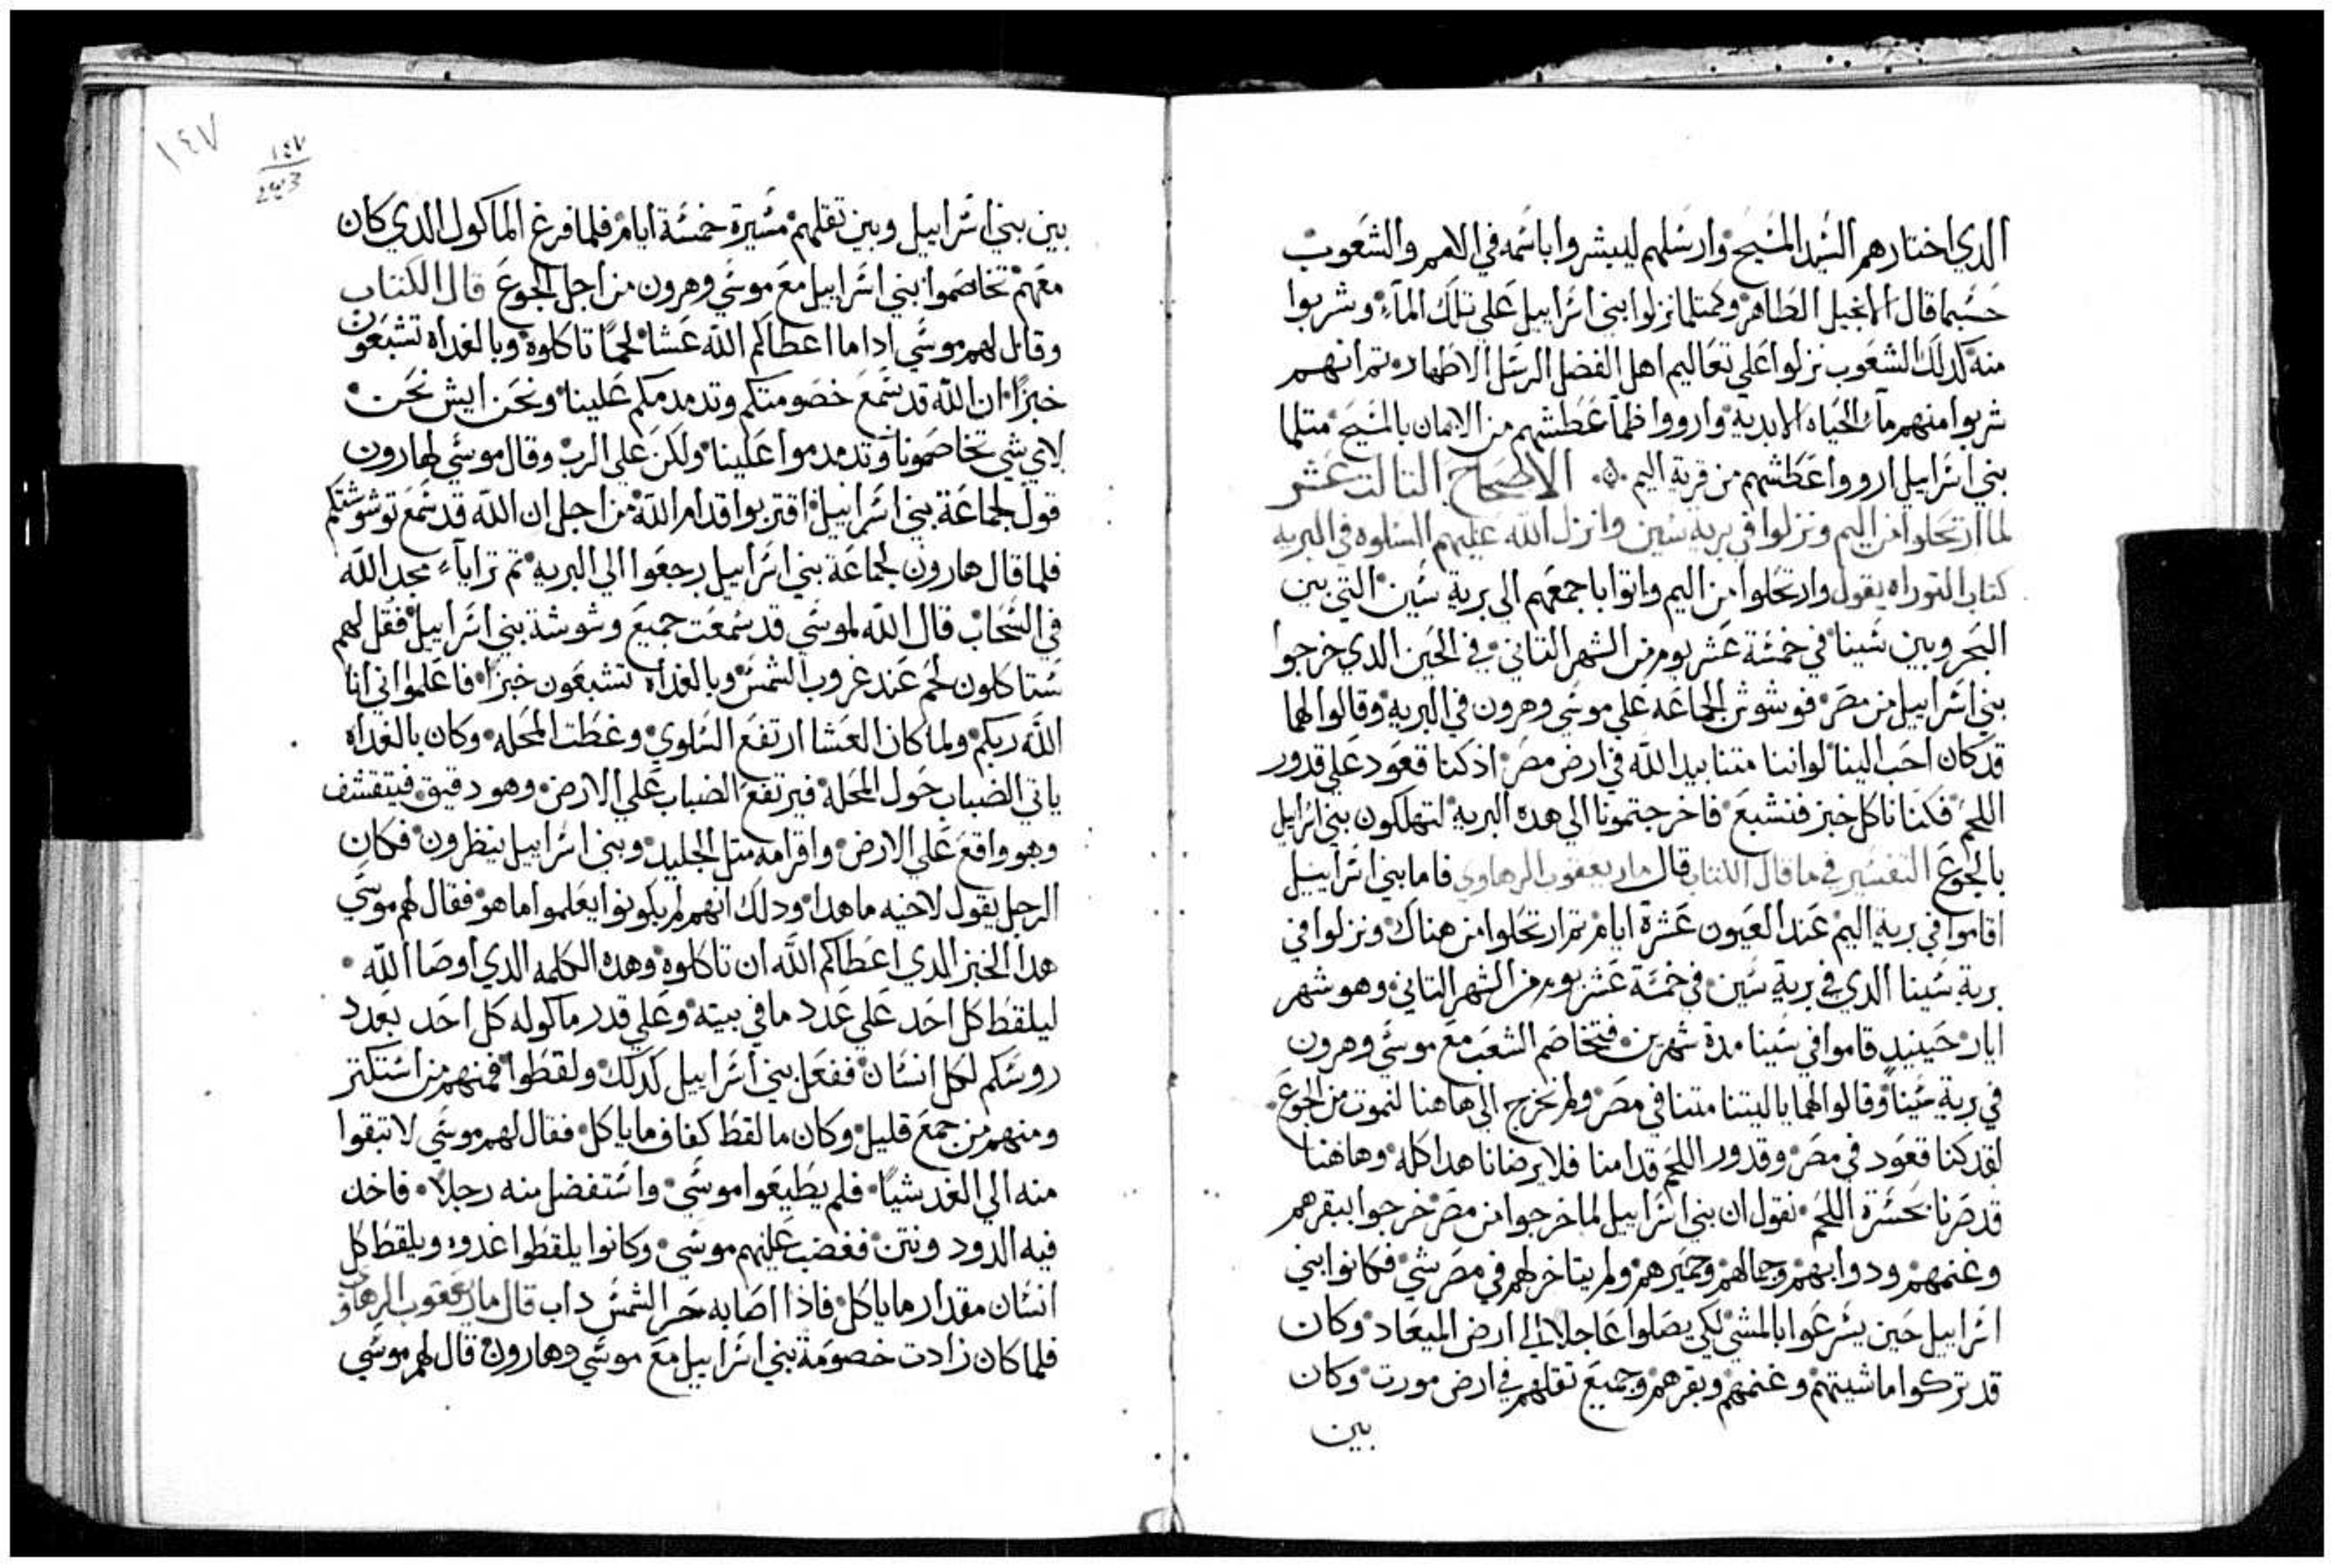 الدي اختارهم السيد المسيح وارسلهم ليبشروا باسمه في الامم والشعوب
حسبما قال الانجيل الطاهر وكمتلما نزلوا بني اسراييل علي تلك المآء وشربوا
منه كدلك الشعوب نزلوا علي تعاليم اهل الفضل الرسل الاطهار تم انهم
شربوا منهم مآء الحياه الابدية وارووا ظمآ عطشهم من الايمان بالمسيح متلما
بني اسراييل ارووا عطشهم من قرية اليم الاصحاح التالت عشر
لما ارتحلوا من اليم ونزلوا في برية سين وانزل الله عليهم السلوه في البريه
كتاب التوراه يقول وارتحلوا من اليم واتوا باجمعهم الي برية سين التي بين
البحر وبين سينا في خمسة عشر يوم من الشهر التاني في الحين الدي خرجوا
بني اسراييل من مصر فوشوش الجماعه علي موسي وهرون في البرية وقالوا لهما
قد كان احب الينا لو اننا متنا بيد الله في ارض مصر اذ كنا قعود علي قدور
اللحم فكنا ناكل خبز فنشبع فاخرجتمونا الي هده البرية لتهلكون بني اسراييل
بالجوع التفسير في ما قال الكتاب قال مار يعقوب الرهاوي فاما بني اسراييل
اقاموا في برية اليم عند العيون عشرة ايام تم ارتحلوا من هناك ونزلوا في
برية سينا الدي في برية سين في خمسة عشر يوم من الشهر التاني وهو شهر
ايار حينيد قاموا في سينا مدة شهرين فتخاصم الشعب مع موسي وهرون
في برية سينا وقالوا لهما ياليتنا متنا في مصر ولم نخرج الي هاهنا لنموت من الجوع
لقد كنا قعود في مصر وقدور اللحم قدامنا فلا يرضانا هدا كله وهاهنا
قد صرنا بحسرة اللحم نقول ان بني اسراييل لما خرجوا من مصر خرجوا ببقرهم
وغنمهم ودوابهم وجمالهم وحميرهم ولم يتاخر لهم في مصر شي فكانوا بني
اسراييل حين يسرعوا بالمشي لكي يصلوا عاجلا الي ارض الميعاد وكان
قد تركوا ماشيتهم وغنمهم وبقرهم وجميع تقلهم في ارض مورت وكان
بين
١٤٧
١٤٧
بين بني اسراييل وبين تقلهم مسيرة خمسة ايام فلما فرغ الماكول الدي كان
معهم تخاصموا بني اسراييل مع موسي وهرون من اجل الجوع قال الكتاب
وقال لهم موسي ادا ما اعطاكم الله عشا لحمًا تاكلوة وبالغداه تشبعون
خبزًا ان الله قد سمع خصومتكم وتدمدمكم علينا ونحن ايش نحن
لاي شي تخاصمونا وتدمدموا علينا ولكن علي الرب وقال موسي لهارون
قول لجماعة بني اسراييل اقتربوا قدام الله من اجل ان الله قد سمع توشوشتكم
فلما قال هارون لجماعة بني اسراييل رجعوا الي البرية تم ترايآء مجد الله
في السحاب قال الله لموسي قد سمعت جميع وشوشة بني اسراييل فقل لهم
ستاكلون لحم عند غروب الشمس وبالغداه تشبعون خبزًا فاعلموا اني انا
الله ربكم ولما كان العشا ارتفع السلوي وغطت المحله وكان بالغداه
ياتي الضباب حول المحلة فيرتفع الضباب علي الارض وهو دقيق فيتقشف
وهو واقع علي الارض واقرامه متل الجليد وبني اسراييل ينظرون فكان
الرجل يقول لاخيه ما هدا ودلك انهم لم يكونوا يعلموا ما هو فقال لهم موسي
هدا الخبز الدي اعطاكم الله ان تاكلوة وهده الكلمه الدي اوصا الله
ليلقط كل احد علي عدد ما في بيته وعلي قدر ماكوله كل احد بعدد
روسكم لكل انسان ففعل بني اسراييل كدلك ولقطوا فمنهم من استكتر
ومنهم من جمع قليل وكان ما لقط كفاف ما ياكل فقال لهم موسي لا تبقوا
منه الي الغد شيًا فلم يطيعوا موسي واستفضل منه رجلا فاخد
فيه الدود ونتن فغضب عليهم موسي وكانوا يلقطوا غدوه ويلقط كل
انسان مقدار ما ياكل فاذا اصابه حر الشمس داب قال مار يعقوب الرهاوي
فلما كان زادت خصومة بني اسراييل مع موسي وهارون قال لهم موسي